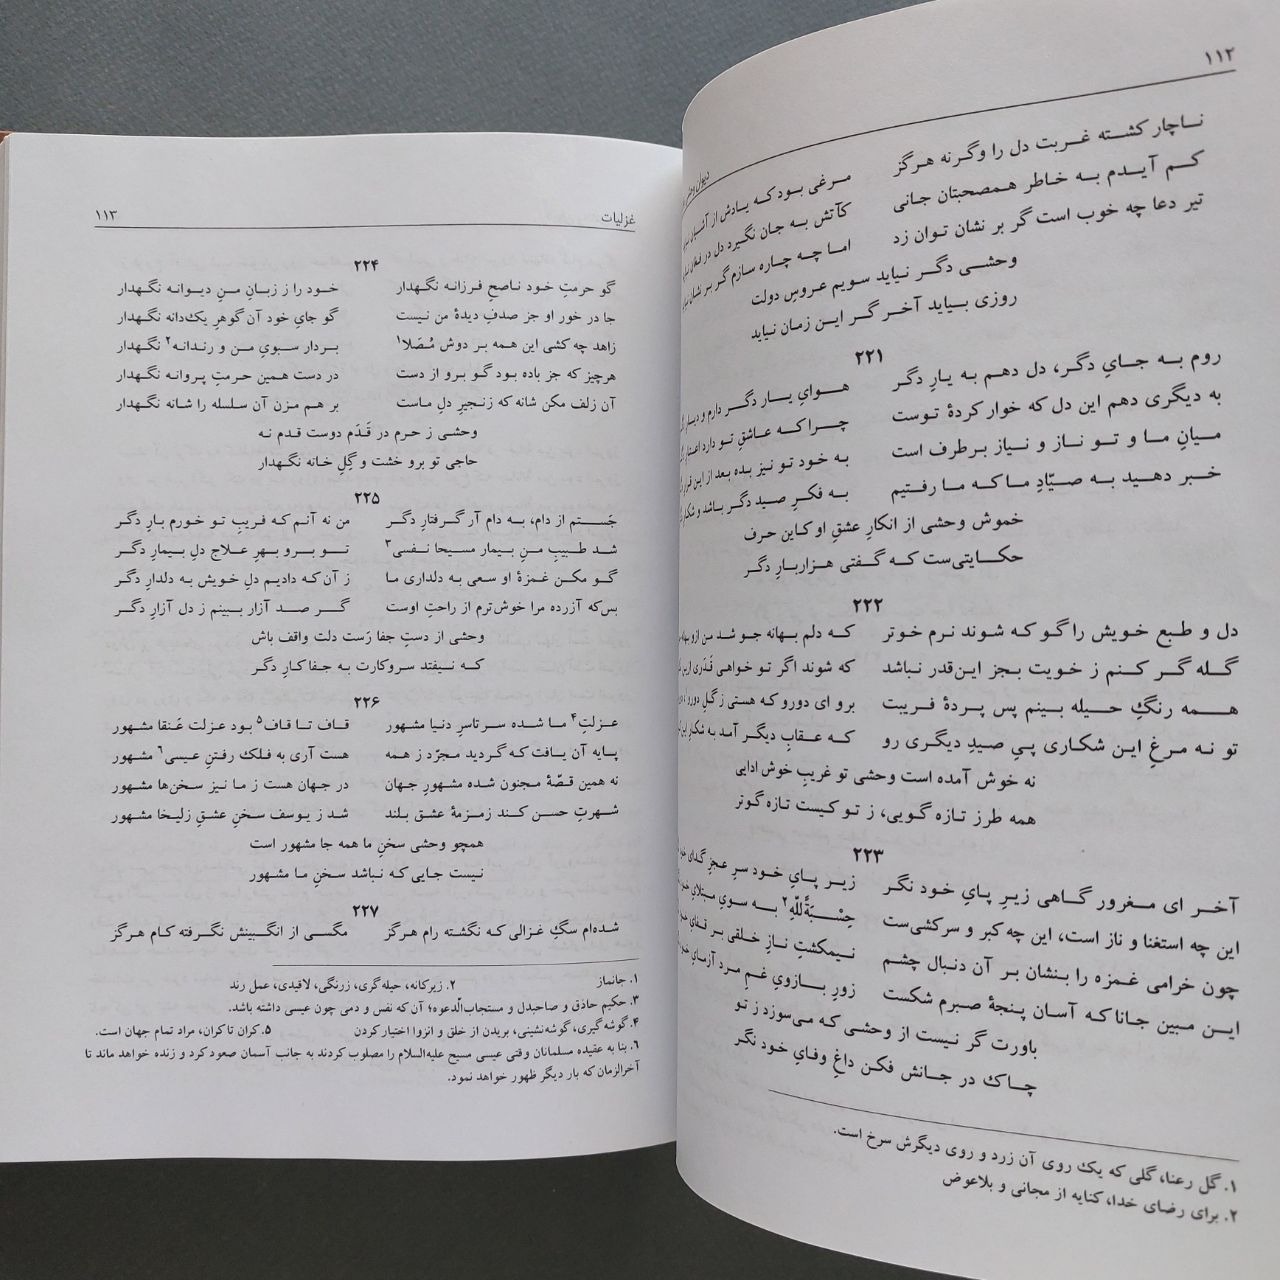 ۱۱۲
دیوان وحشی
ناچار کشته غربت دل را وگرنه هرگز مرغی بود که یادش از آشیان
کم آیدم به خاطر همصحبتان جانی کآتش به جان نگیرد دل در فغان
تیر دعا چه خوب است گر بر نشان توان زد اما چه چاره سازم گر بر نشان
وحشی دگر نیاید سویم عروسِ دولت
روزی بیاید آخر گر این زمان نیاید
۲۲۱
روم به جایِ دگر، دل دهم به یارِ دگر هوایِ یار دگر دارم و دیار
به دیگری دهم این دل که خوار کردهٔ توست چرا که عاشقِ تو دارد اعتبار
میانِ ما و تو ناز و نیاز برطرف است به خود تو نیز بده بعد از این قرار
خبر دهید به صیّادِ ما که ما رفتیم به فکرِ صید دگر باشد و شکار
خموش وحشی از انکارِ عشقِ او کاین حرف
حکایتی‌ست که گفتی هزاربارِ دگر
۲۲۲
دل و طبع خویش را گو که شوند نرم خوتر که دلم بهانه جو شد من ازو بهانه
گله گر کنم ز خویت بجز این‌قدر نباشد که شوند اگر تو خواهی قَدَری ازین
همه رنگِ حیله بینم پس پردهٔ فریبت برو ای دورو که هستی ز گلِ دورو۱ دورو
تو نه مرغِ این شکاری پیِ صیدِ دیگری رو که عقابِ دیگر آمد به شکارِ این
نه خوش آمده است وحشی تو غریبِ خوش ادایی
همه طرز تازه گویی، ز تو کیست تازه گوتر
۲۲۳
آخر ای مغرور گاهی زیرِ پایِ خود نگر زیر پایِ خود سرِ عجزِ گدای
این چه استغنا و ناز است، این چه کبر و سرکشی‌ست حِسْبَةً‌لِلّهِ۲ به سویِ مبتلایِ
چون خرامی غمزه را بنشان بر آن دنبال چشم نیمکشتِ نازِ خلقی بر قفای
این مبین جانا که آسان پنجهٔ صبرم شکست زورِ بازویِ غمِ مرد آزمایِ
باورت گر نیست از وحشی که می‌سوزد ز تو
چاک در جانش فکن داغِ وفایِ خود نگر
۱. گل رعنا، گلی که یک روی آن زرد و روی دیگرش سرخ است.
۲. برای رضای خدا، کنایه از مجانی و بلاعوض
غزلیات ۱۱۳
۲۲۴
گو حرمتِ خود ناصحِ فرزانه نگهدار خود را ز زبانِ منِ دیوانه نگهدار
جا در خور او جز صدفِ دیدهٔ من نیست گو جایِ خود آن گوهرِ یک‌دانه نگهدار
زاهد چه کشی این همه بر دوش مُصَلا۱ بردار سبویِ من و رندانه۲ نگهدار
هرچیز که جز باده بود گو برو از دست در دست همین حرمتِ پروانه نگهدار
آن زلف مکن شانه که زنجیرِ دلِ ماست بر هم مزن آن سلسله را شانه نگهدار
وحشی ز حرم در قَدَم دوست قدم نه
حاجی تو برو خشت و گِلِ خانه نگهدار
۲۲۵
جَستم از دام، به دام آر گرفتارِ دگر من نه آنم که فریبِ تو خورم بارِ دگر
شد طبیبِ منِ بیمار مسیحا نفسی۳ تو برو بهرِ علاج دلِ بیمارِ دگر
گو مکن غمزهٔ او سعی به دلداری ما ز آن که دادیم دلِ خویش به دلدارِ دگر
بس‌که آزرده مرا خوش‌ترم از راحتِ اوست گر صد آزار ببینم ز دل آزارِ دگر
وحشی از دستِ جفا رَست دلت واقف باش
که نیفتد سروکارت به جفاکارِ دگر
۲۲۶
عزلتِ۴ ما شده سرتاسرِ دنیا مشهور قاف تا قاف۵ بود عزلت عَنقا مشهور
پایه آن یافت که گردید مجرّد ز همه هست آری به فلک رفتنِ عیسی۶ مشهور
نه همین قصّهٔ مجنون شده مشهورِ جهان در جهان هست ز ما نیز سخن‌ها مشهور
شهرتِ حسن کند زمزمهٔ عشق بلند شد ز یوسف سخنِ عشقِ زلیخا مشهور
همچو وحشی سخنِ ما همه جا مشهور است
نیست جایی که نباشد سخنِ ما مشهور
۲۲۷
شده‌ام سگِ غزالی که نگشته رام هرگز مگسی از انگبینش نگرفته کام هرگز
۱. جانماز ۲. زیرکانه، حیله‌گری، زرنگی، لاقیدی، عمل رند
۳. حکیم حاذق و صاحبدل و مستجاب‌الّدعوه؛ آن که نفس و دمی چون عیسی داشته باشد.
۴. گوشه‌گیری، گوشه‌نشینی، بریدن از خلق و انزوا اختیار کردن ۵. کران تا کران، مراد تمام جهان است.
۶. بنا به عقیده مسلمانان وقتی عیسی مسیح علیه‌السلام را مصلوب کردند به جانب آسمان صعود کرد و زنده خواهد ماند تا
آخرالزمان که بار دیگر ظهور خواهد نمود.